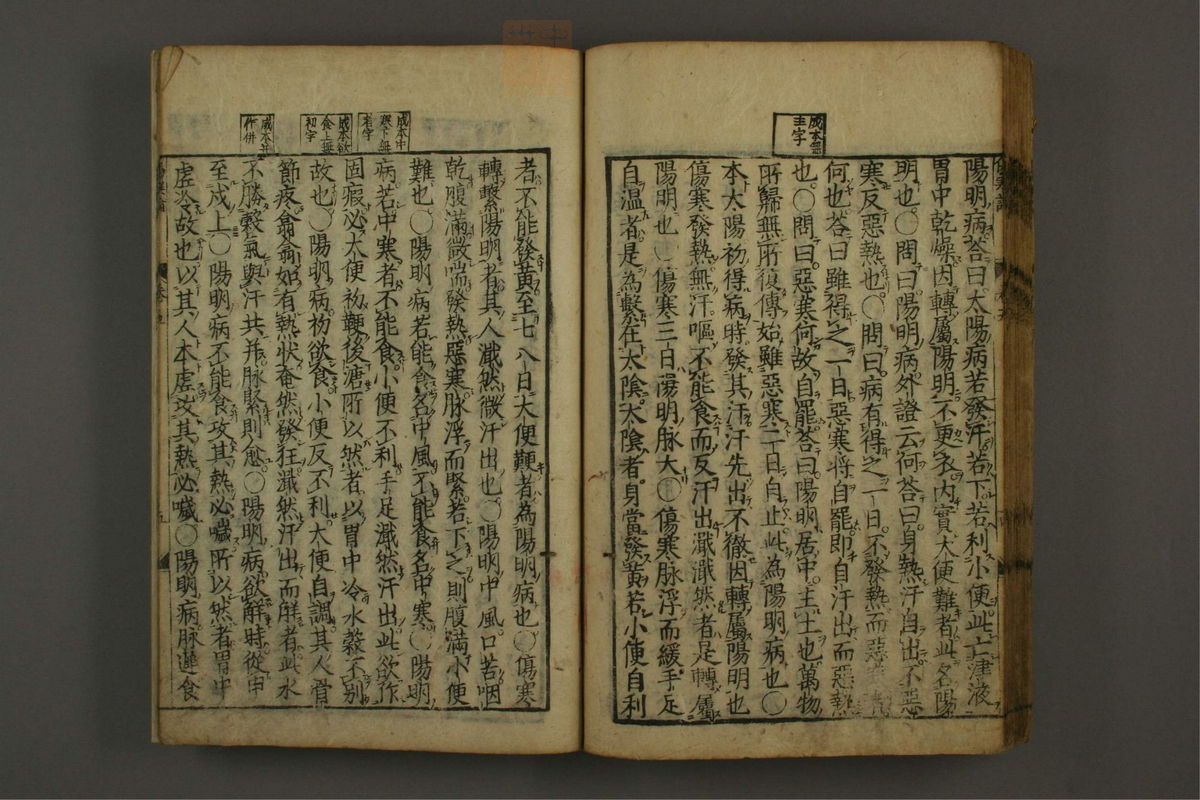 成本無
主字
陽明病荅曰太陽病若發汗若下若利小便此亡津液
胃中乾燥因轉屬陽明不更衣内實大便難者此名陽
明也○問曰陽明病外證云何荅曰身熱汗自出不惡
寒反惡熱也○問曰病有得之一日不發熱而惡寒者
何也荅曰雖得之一日惡寒將自罷即自汗出而惡熱
也○問曰惡寒何故自罷荅曰陽明居中主土也萬物
所歸無所復傳始雖惡寒二日自止此為陽明病也○
本太陽初得病時發其汗汗先出不徹因轉屬陽明也
傷寒發熱無汗嘔不能食而反汗出濈濈然者是轉屬
陽明也○傷寒三日陽明脉大○傷寒脉浮而緩手足
自温者是為繫在太陰太陰者身當發黃若小便自利
成本中
寒下無
者字
成本欲
食上無
初字
成本并
作併
者不能發黃至七八日大便鞕者為陽明病也○傷寒
轉繫陽明者其人濈然微汗出也○陽明中風口苦咽
乾腹滿微喘發熱惡寒脉浮而緊若下之則腹滿小便
難也○陽明病若能食名中風不能食名中寒○陽明
病若中寒者不能食小便不利手足濈然汗出此欲作
固瘕必大便初鞕後溏所以然者以胃中冷水穀不別
故也○陽明病初欲食小便反不利大便自調其人骨
節疼翕翕如有熱狀奄然發狂濈然汗出而解者此水
不勝穀氣與汗共并脉緊則愈○陽明病欲解時從申
至戌上○陽明病不能食攻其熱必噦所以然者胃中
虛冷故也以其人本虛攻其熱必噦○陽明病脉遲食